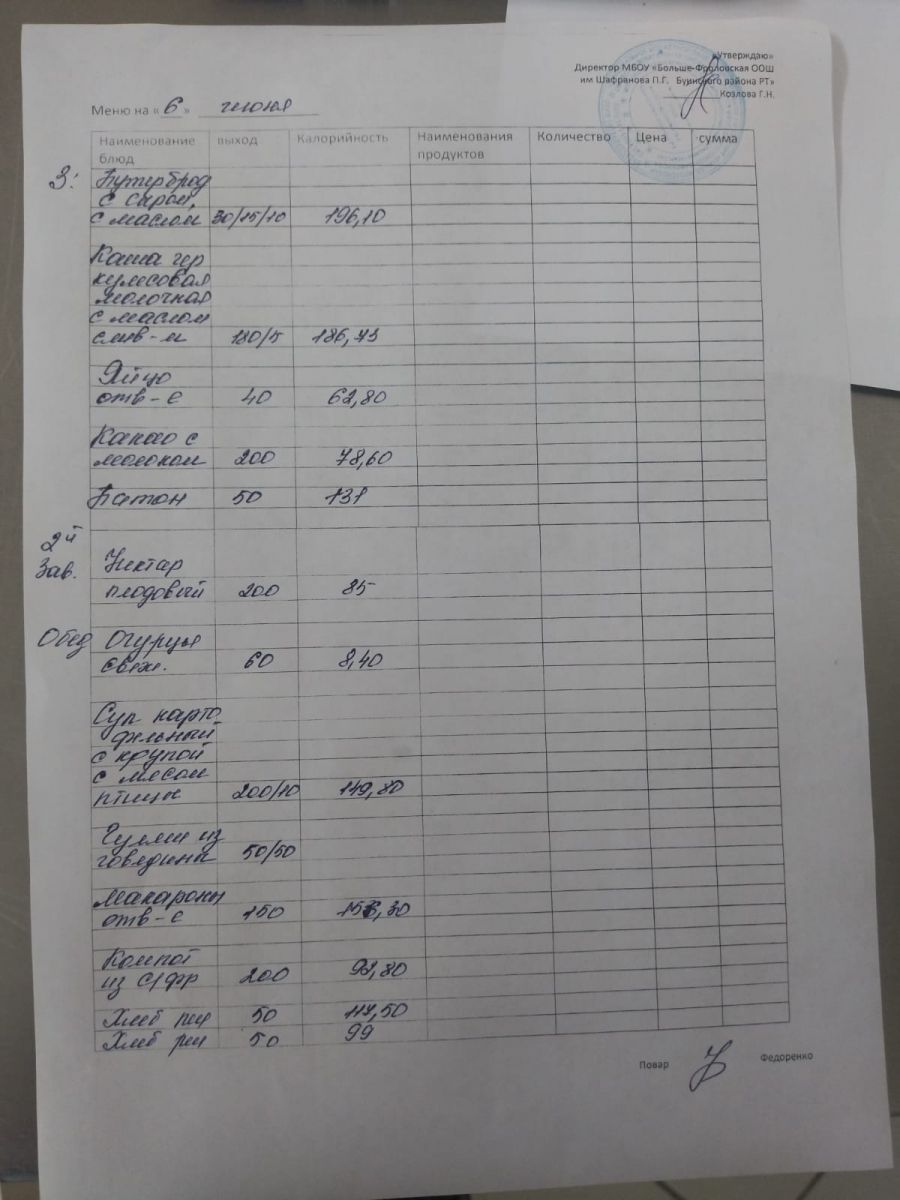 «Утверждаю»
Директор МБОУ «Больше-Фроловская ООШ
им Шафранова П.Г. Буинского района РТ»
Козлова Г.Н.
Меню на « 6 » июня
Наименование блюд выход Калорийность Наименования продуктов Количество Цена сумма
З: Бутерброд
с сыром,
с маслом 30/15/10 196,10
Каша гер
кулесовая
молочная
с маслом
слив-м 180/5 186,73
Яйцо
отв-е 40 62,80
Какао с
молоком 200 78,60
Батон 50 131
2й
Зав. Нектар
плодовый 200 85
Обед Огурцы
свеж. 60 8,40
Суп карто
фельный
с крупой
с мясом
птицы 200/10 149,80
Гуляш из
говядины 50/50
Макароны
отв-е 150 153,30
Компот
из с/фр 200 92,80
Хлеб пш 50 117,50
Хлеб рж 50 99
Повар Федоренко